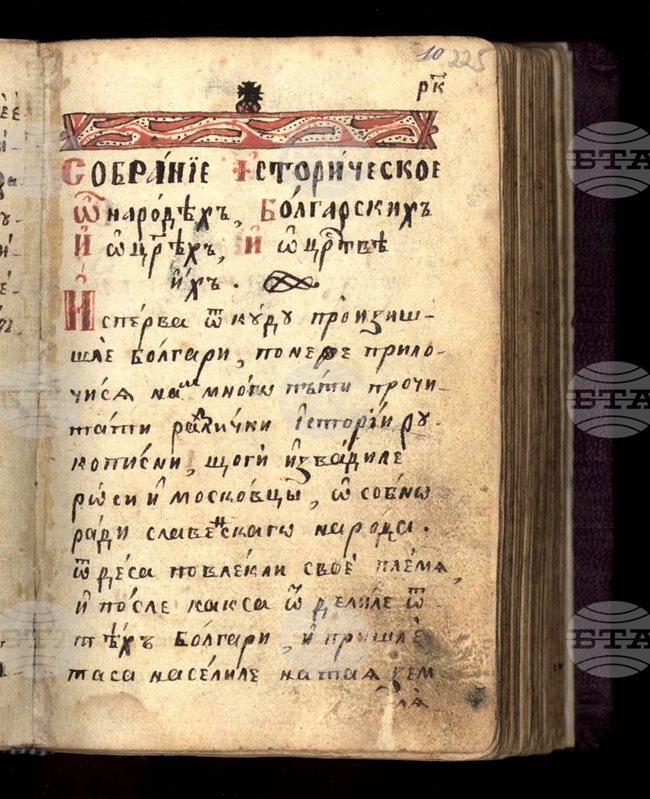 10 225
рк҃
СОБРА́НЇЕ І҆СТОРИ́ЧЕСКОЕ
Ѿ наро́дѣхъ, Бо́лгарскихъ
И҆ ѡ҆ цр҃ѣхъ, И҆ ѡ҆ црⷭ҇твѣ
и҆́хъ.
И҆сперва ѿ кꙋ́дꙋ произиш-
шле бо́лгари, понеже прило-
чисѧ намъ многѡ пъти прочи-
тати разли́чки і҆сторїи рꙋ-
кописни, щоги и҆зва́диле
рꙋ́си и҆ московцы, ѡ҆собнѡ
ради славенскагѡ народа.
ѿ деса повлекли свое́ племѧ,
и҆ по́сле какса ѿделиле ѿ
тѣхъ болгари, и҆ пришле́
таса населиле натаѧ зем
лѧ
БТА
БТА
БТА